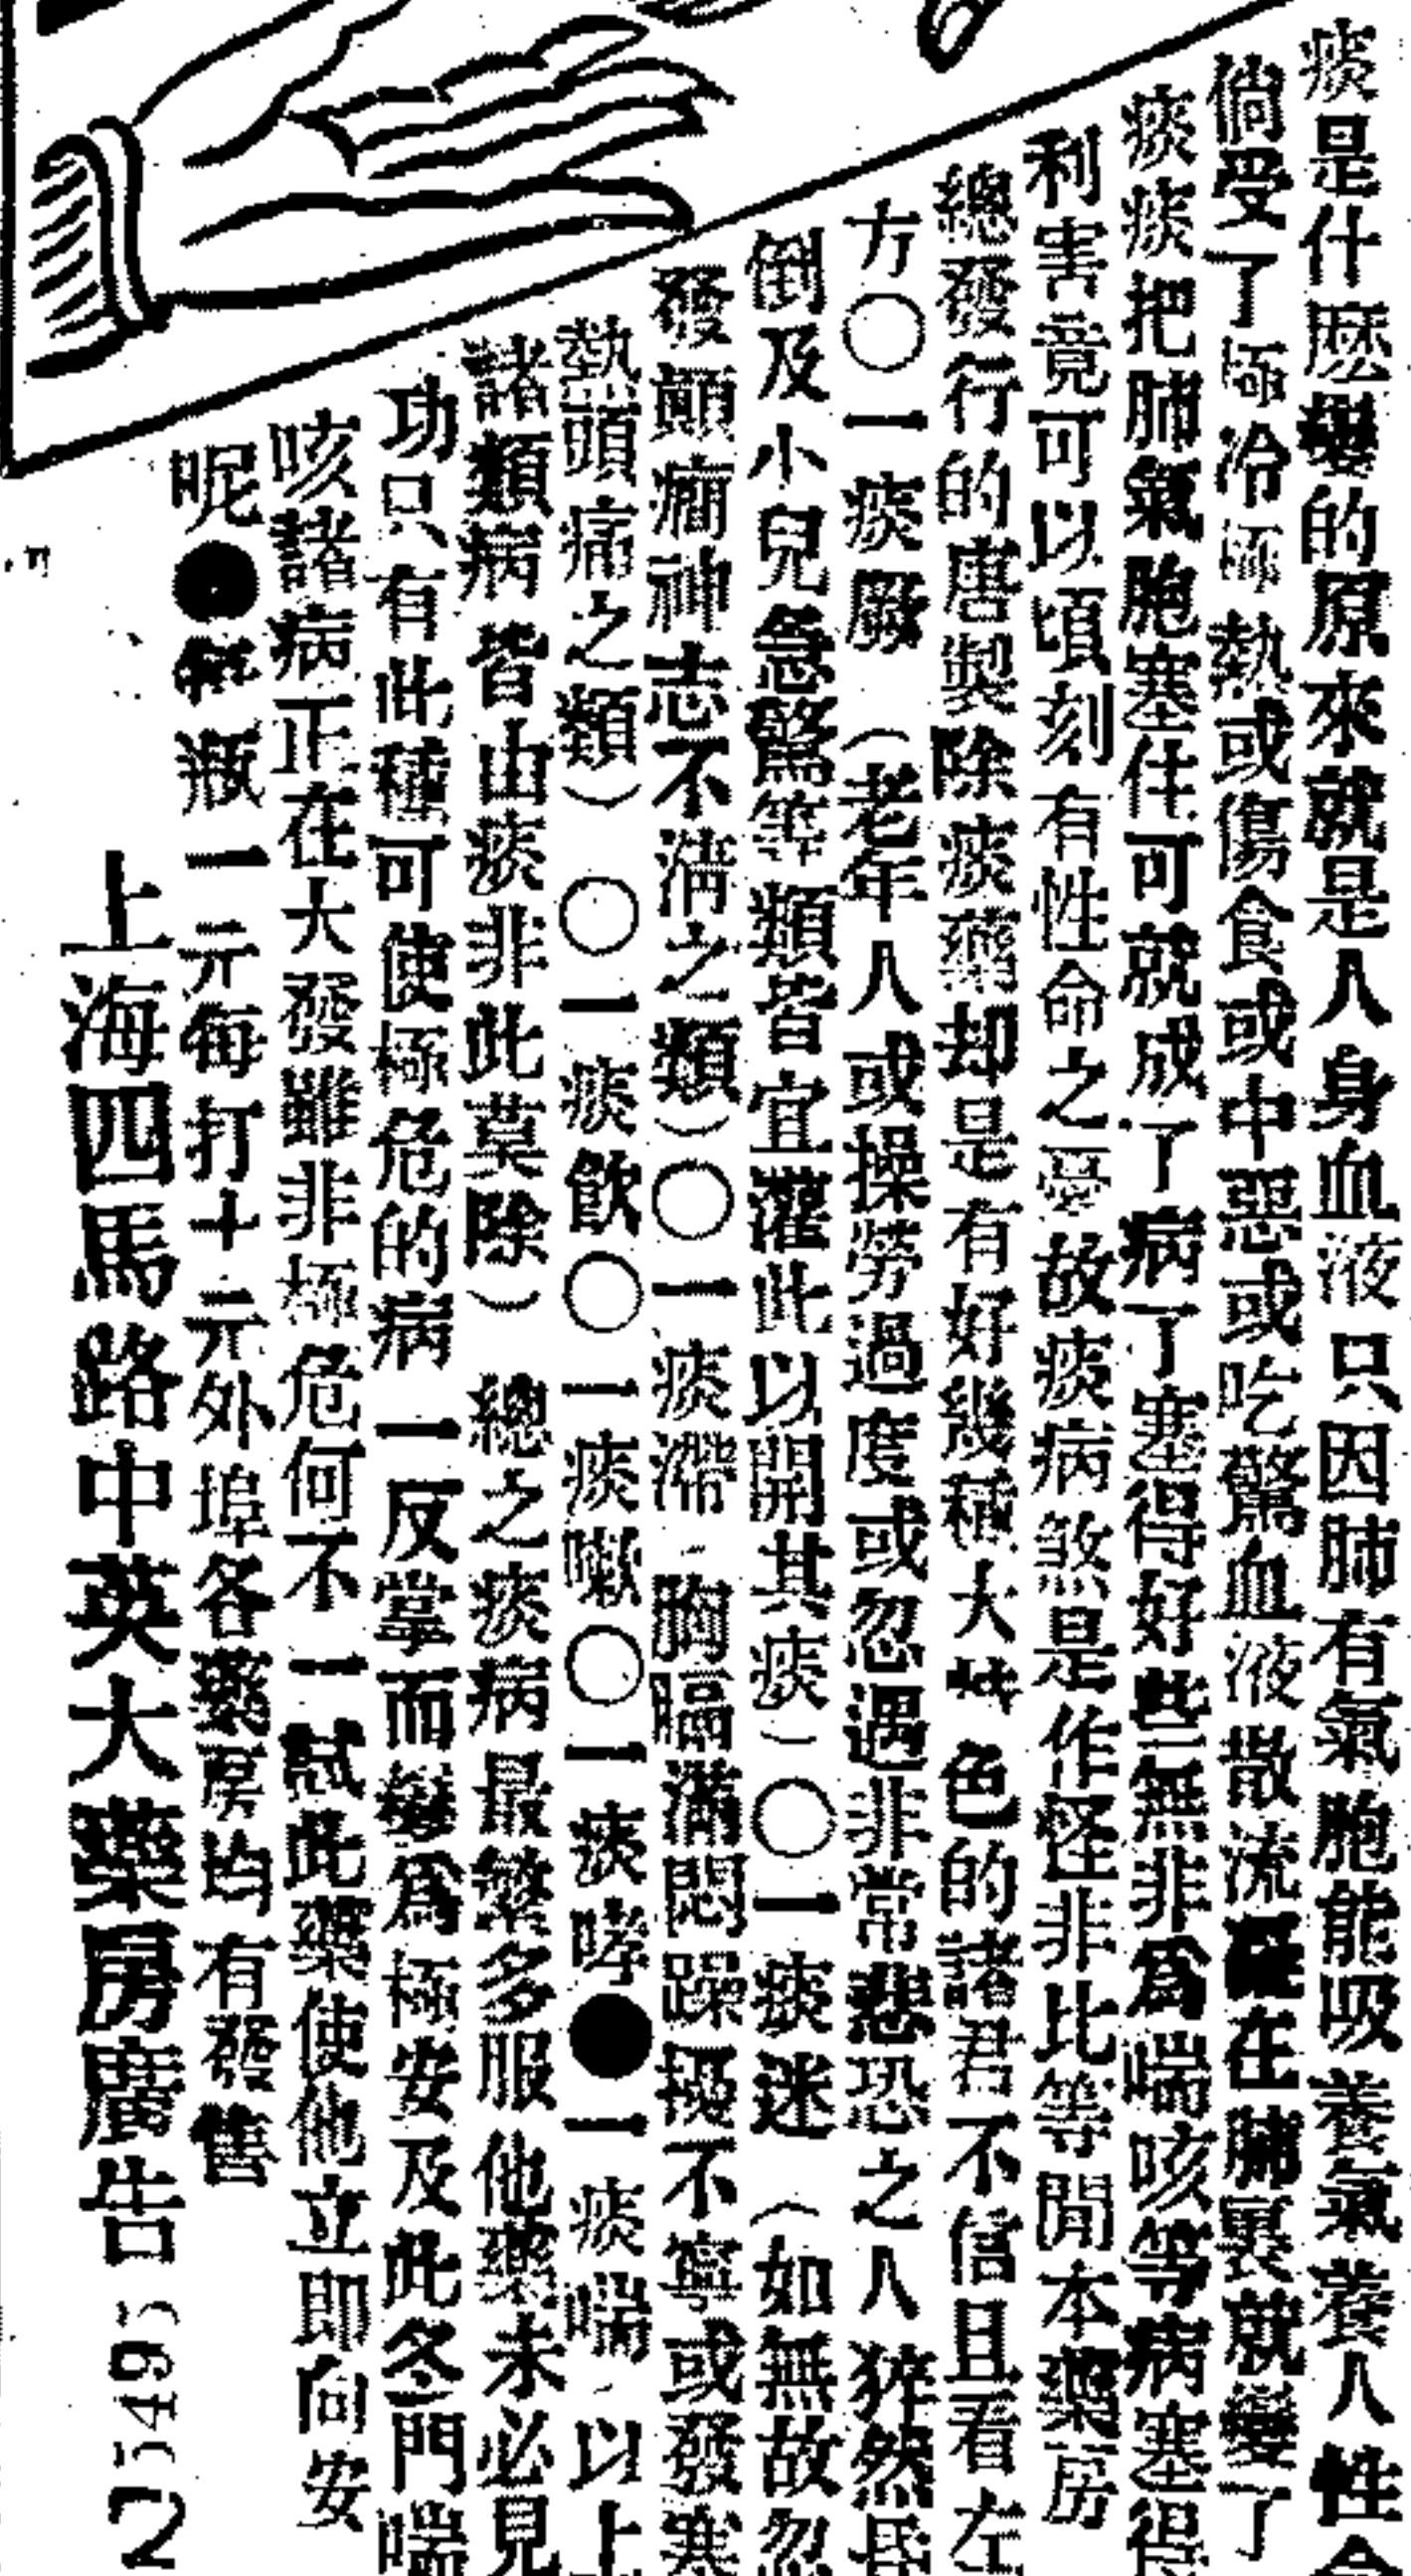 痰是什麽變的原來就是人身血液只因肺有氣胞能吸養氣養人性命
倘受了極冷極熱或傷食或中惡或吃驚血液散流凝在肺裏就變了
痰痰把肺氣胞塞住可就成了病了塞得好些無非爲喘咳等病塞得
利害竟可以頃刻有性命之憂故痰病煞是作怪非比等閒本藥房
總發行的唐製除痰藥却是有好幾種大特色的諸君不信且看左
方〇一痰厥（老年人或操勞過度或忽遇非常悲恐之人猝然昏
倒及小兒急驚等類皆宜灌此以開其痰）〇一痰迷（如無故忽
發顚癎神志不淸之類）〇一痰滯 胸膈滿悶躁擾不寧或發寒
熱頭痛之類）〇一痰飮〇一痰嗽〇一痰哮●一痰喘 以上
諸類病皆由痰非此莫除）總之痰病最繁多服他藥未必見
功只有此種可使極危的病一反掌而變爲極安及此冬門喘
咳諸病正在大發雖非極危何不一試此藥使他立即向安
呢●每瓶一元每打十元外埠各藥房均有發售
上海四馬路中英大藥房廣告